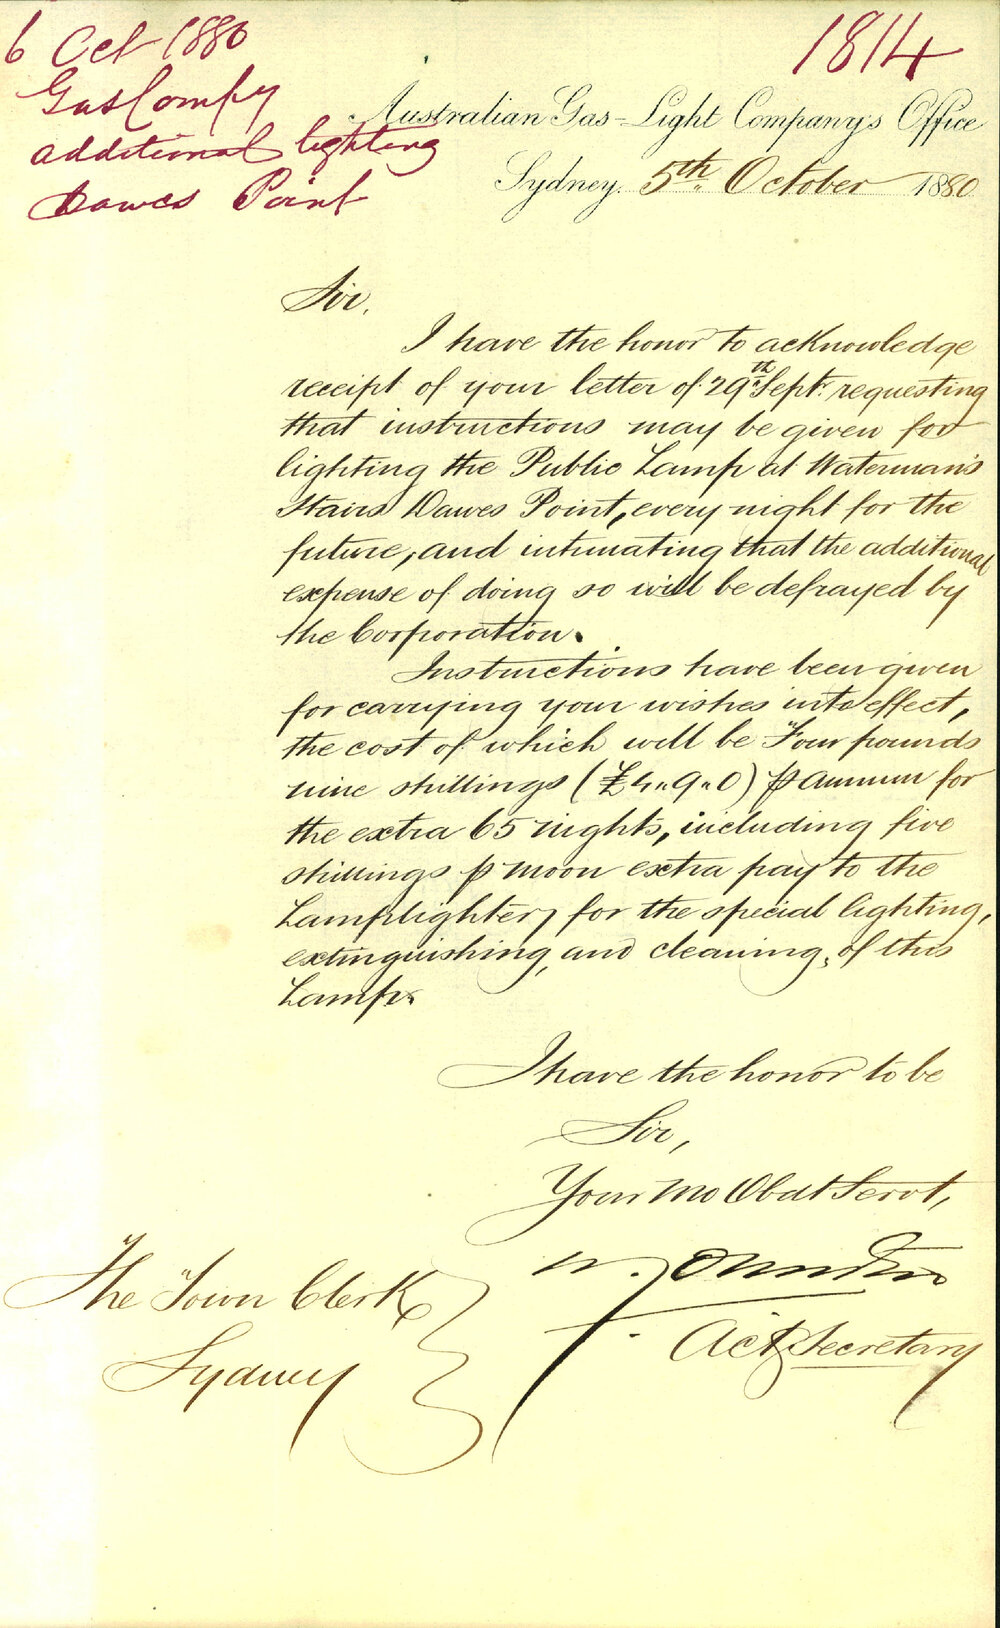 6 Oct 1880
Gas Compy
additional lighting
Dawes Point
1814
Australian Gas-Light Company's Office
Sydney. 5th October 1880
Sir,
I have the honor to acknowledge
receipt of your letter of 29th Sept. requesting
that instructions may be given for
lighting the Public Lamp at Waterman's
Stairs Dawes Point, every night for the
future, and intimating that the additional
expense of doing so will be defrayed by
the Corporation.
Instructions have been given
for carrying your wishes into effect,
the cost of which will be Four pounds
nine shillings (£4.,9.,0) ⅌ annum for
the extra 65 nights, including five
shillings ⅌ moon extra pay to the
Lamplighter, for the special lighting,
extinguishing, and cleaning, of this
Lamp.
I have the honor to be
Sir,
Your Mo Obdt Servt,
W.
Actg Secretary
The Town Clerk
Sydney